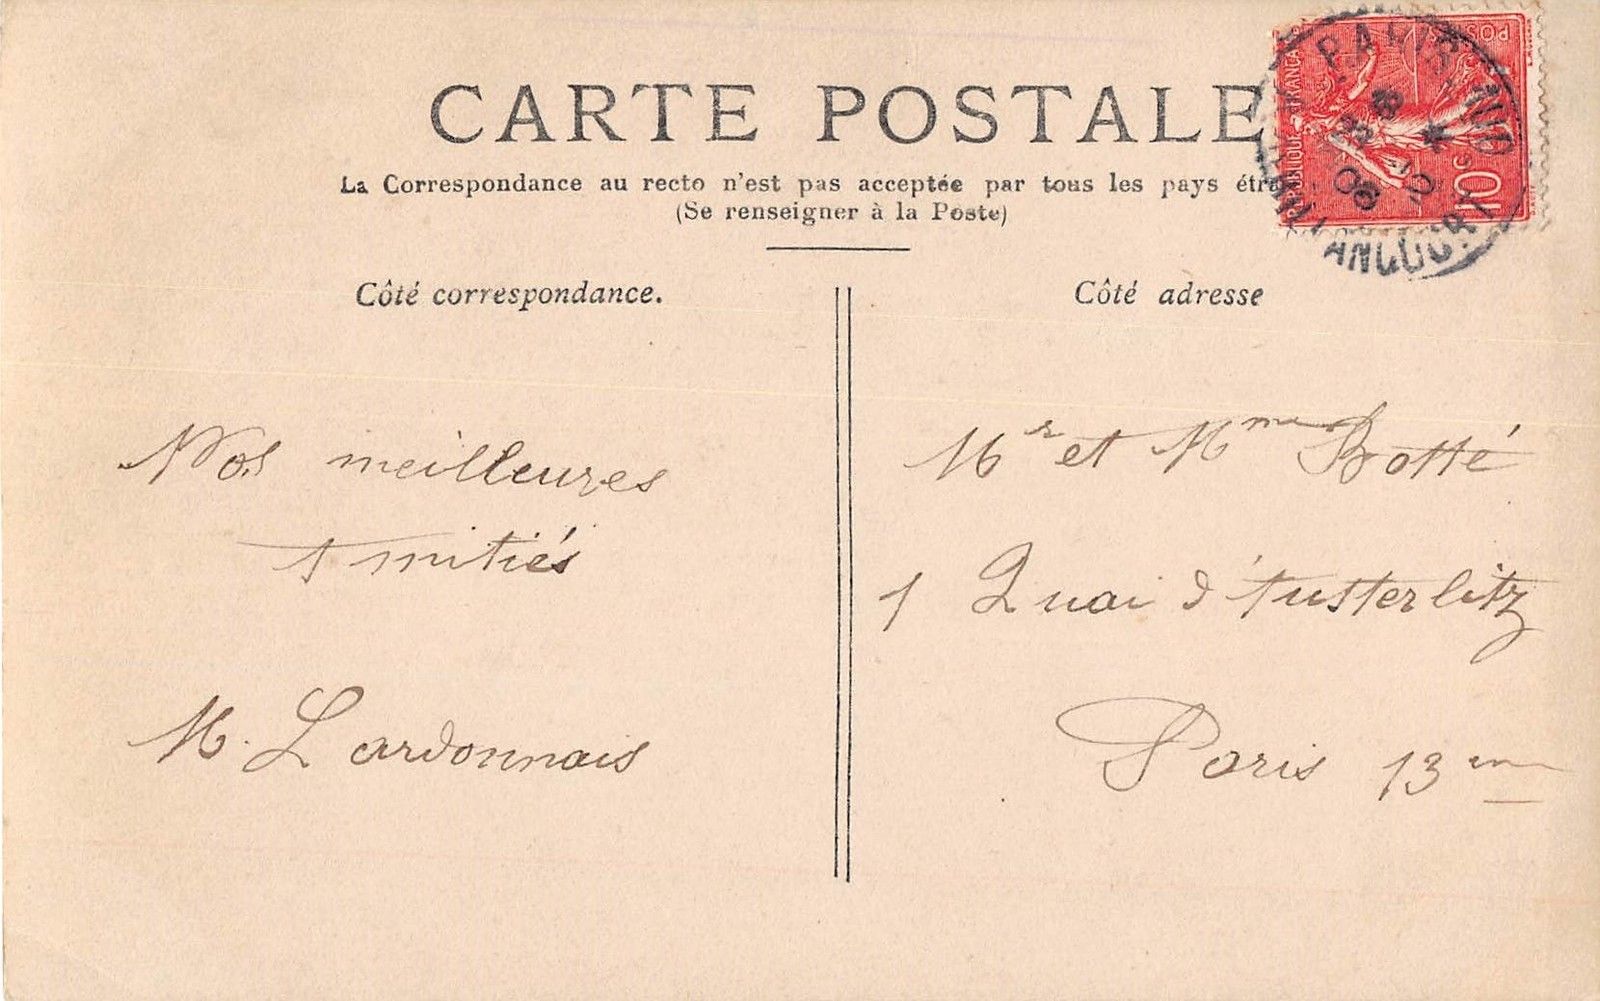 CARTE POSTALE
La Correspondance au recto n'est pas acceptée par tous les pays étra
(Se renseigner à la Poste)
Côté correspondance.
Côté adresse
Nos meilleures
Amitiés
M. Lardonnais
Mr et Mme Botté
1 Quai d'Austerlitz
Paris 13me
RÉPUBLIQUE FRANÇAISE
POSTES
10c
PARIS
22 - 10
06